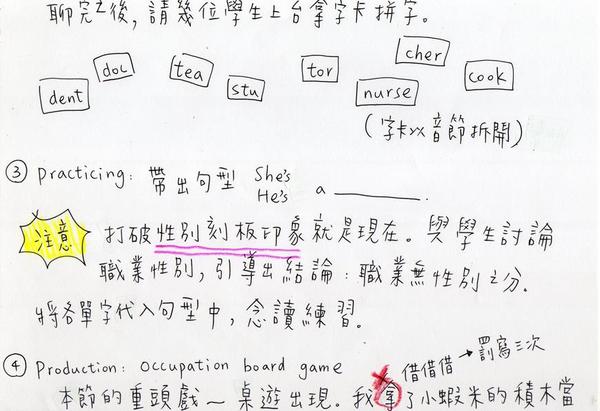 聊完之後，請幾位學生上台拿字卡拼字。
dent doc tea stu tor nurse cher cook
(字卡以音節拆開)
③ Practicing: 帶出句型 She's He's a ______.
注意 打破性別刻板印象就是現在。與學生討論
職業性別，引導出結論：職業無性別之分.
將各單字代入句型中，念讀練習。
④ Production: Occupation board game
借借借→罰寫三次
本節的重頭戲～桌遊出現。我拿了小蝦米的積木當